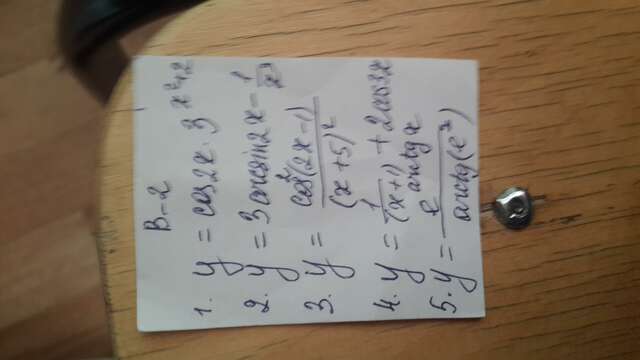 В-2
1. y = cos2x · 3^(x²+2)
2. y = 3arcsin2x - 1/x³
3. y = cos⁵(2x-1)/(x+5)²
4. y = 1/(x+1) + 2cos3x
5. y = e^(arctgx)/arctg(eˣ)